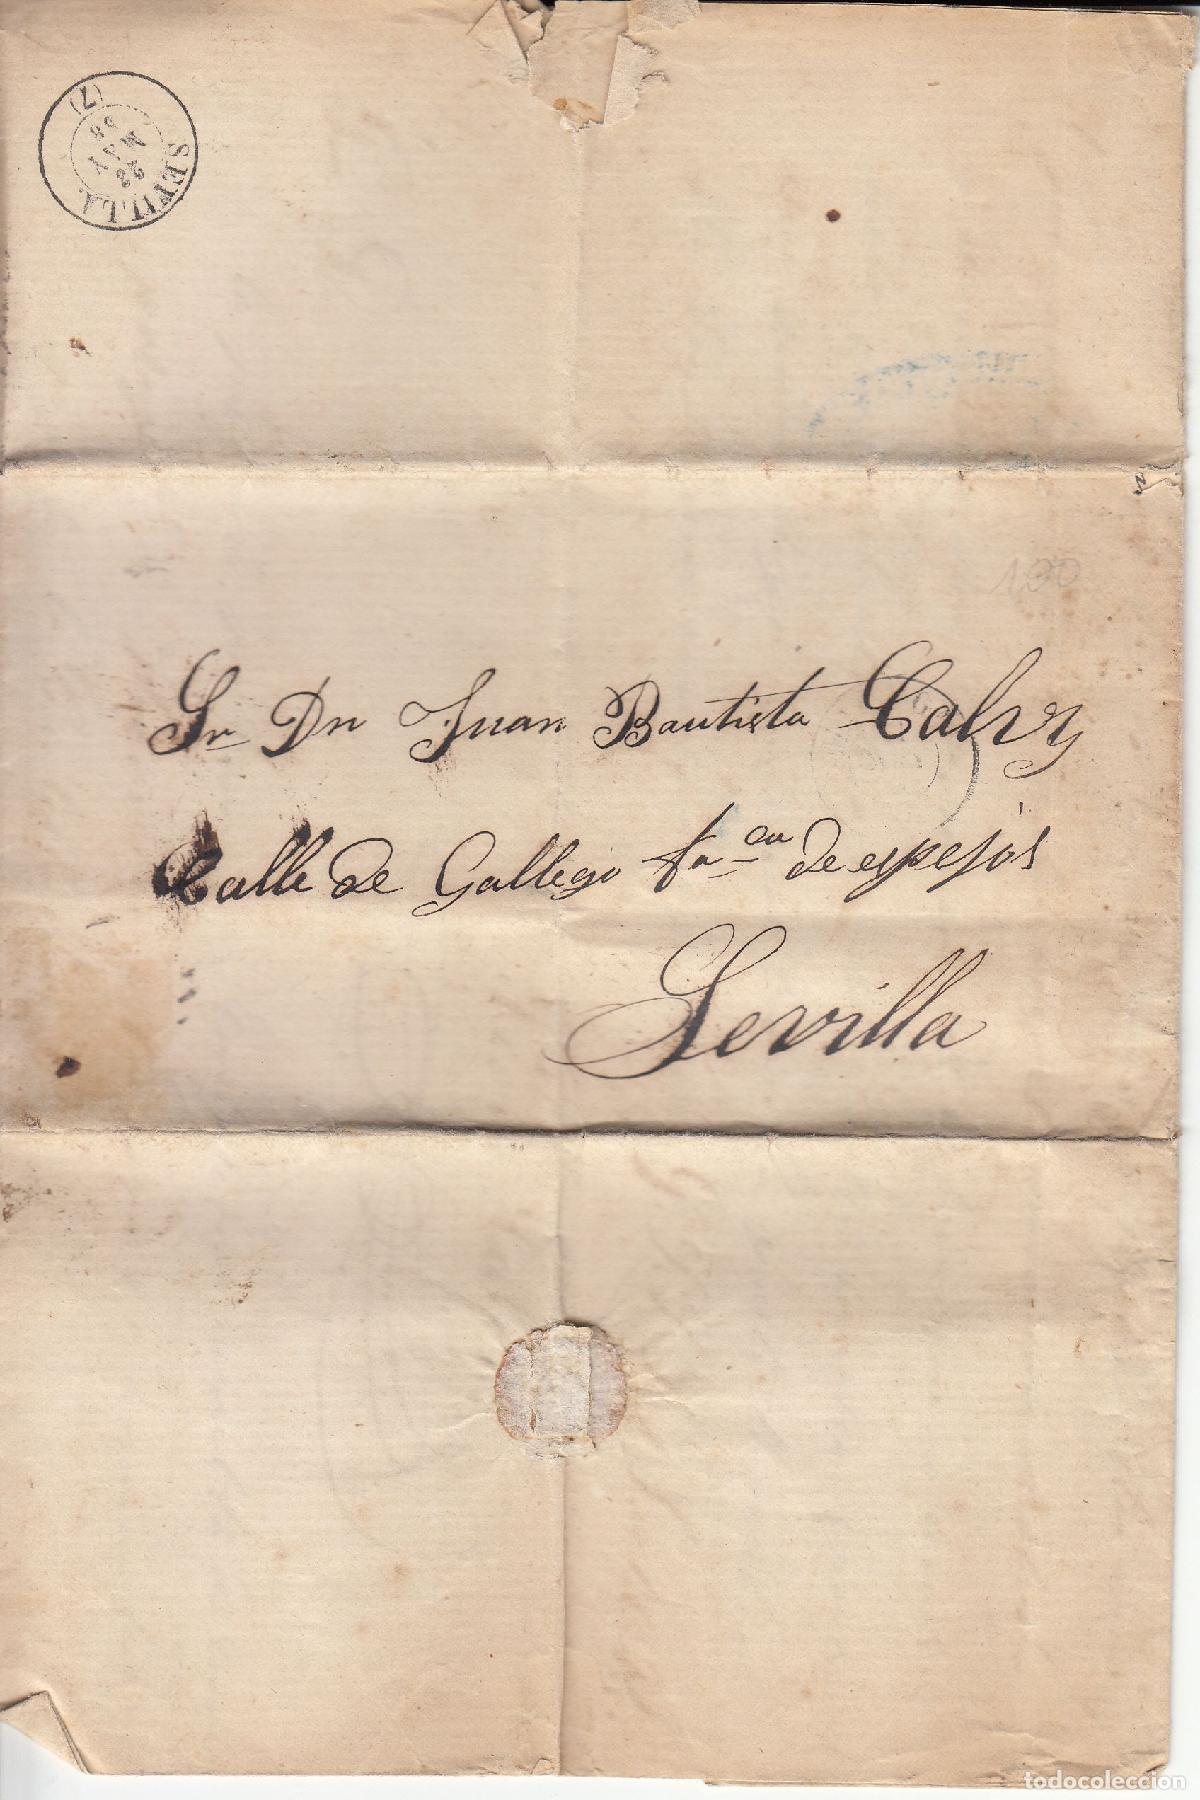 SEVILLA
23
MAY
58
(7)
100
Sr Dn Juan Bautista Calvy
Calle de Gallego fa_ca de espejos
Sevilla
todocoleccion